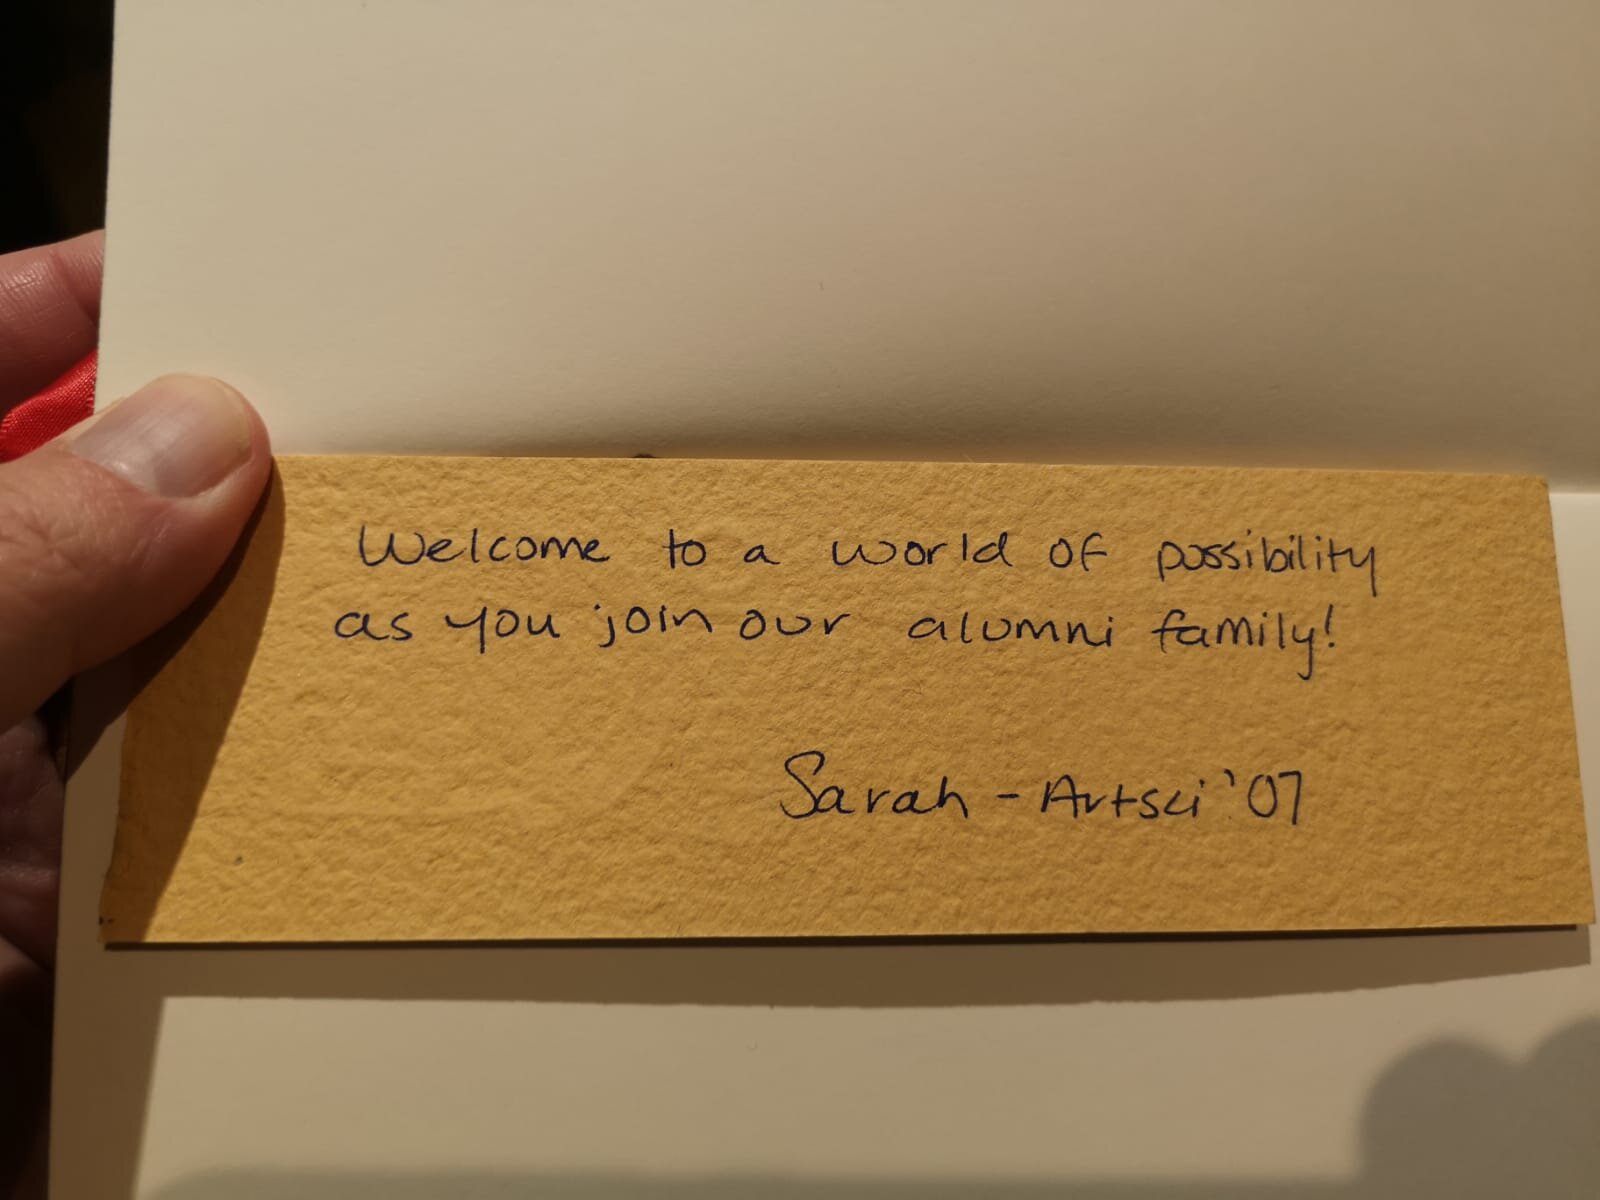 Welcome to a world of possibility
as you join our alumni family!
Sarah - Artsci '07